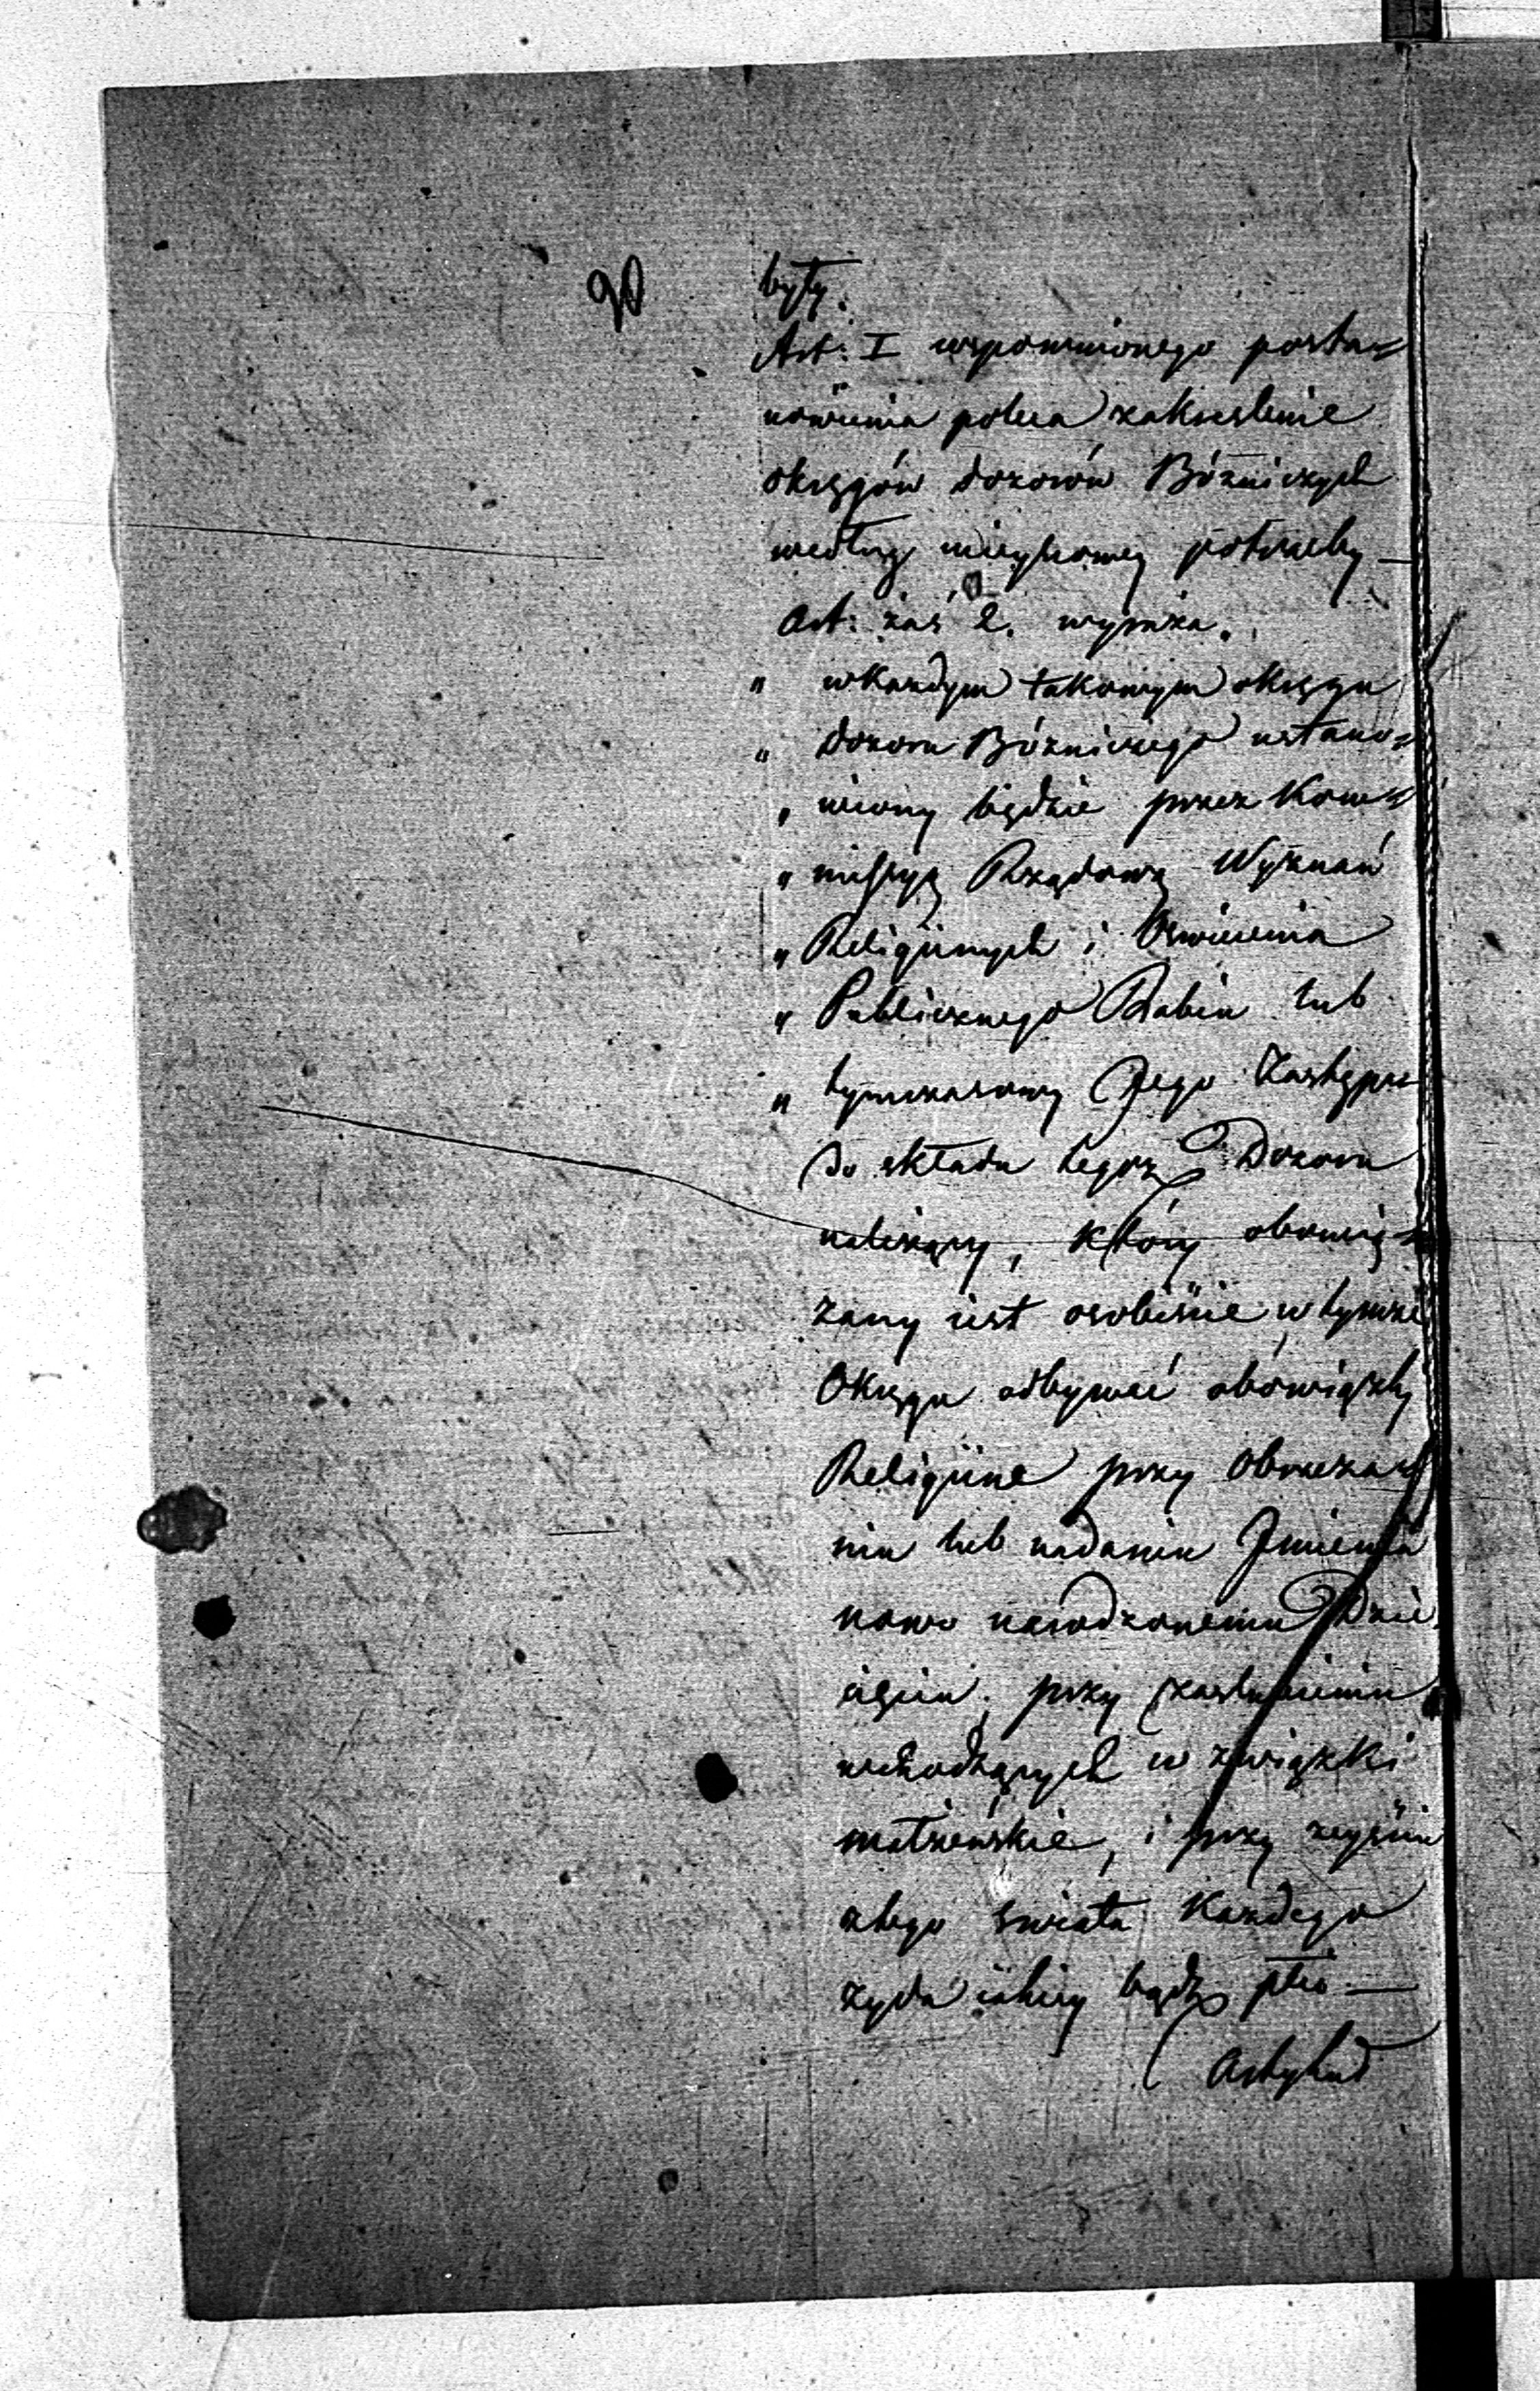 90
były.
Art: I wspomnionego posta=
nowienia poleca zakreslenie
okręgów dozorów Bóżniczych
według mieyscowey potrzeby —
Art: zaś 2. wyraża.
" w Kazdym takowym okręgu
" dozoru Bóżniczego ustano=
" wiony będzie przez Kom=
" missyą Rządową Wyznań
" Religiinych i Oswiecenia
" Publicznego Rabin lub
" tymczasowy Jego Zastępca
do składu tegoż Dozoru
należący, który obowią=
zany iest osobiście w tymże
Okręgu odbywać obowiązki
Religiine przy Obrzeza=
niu lub nadaniu Jmienia
nowo narodzonemu Dzie
cięciu, przy zaslubieniu
wchodzących w związki
małżeńskie, i przy zeyściu
z tego swiata Kazdego
zyda iakiey bądz płci —
Artykuł